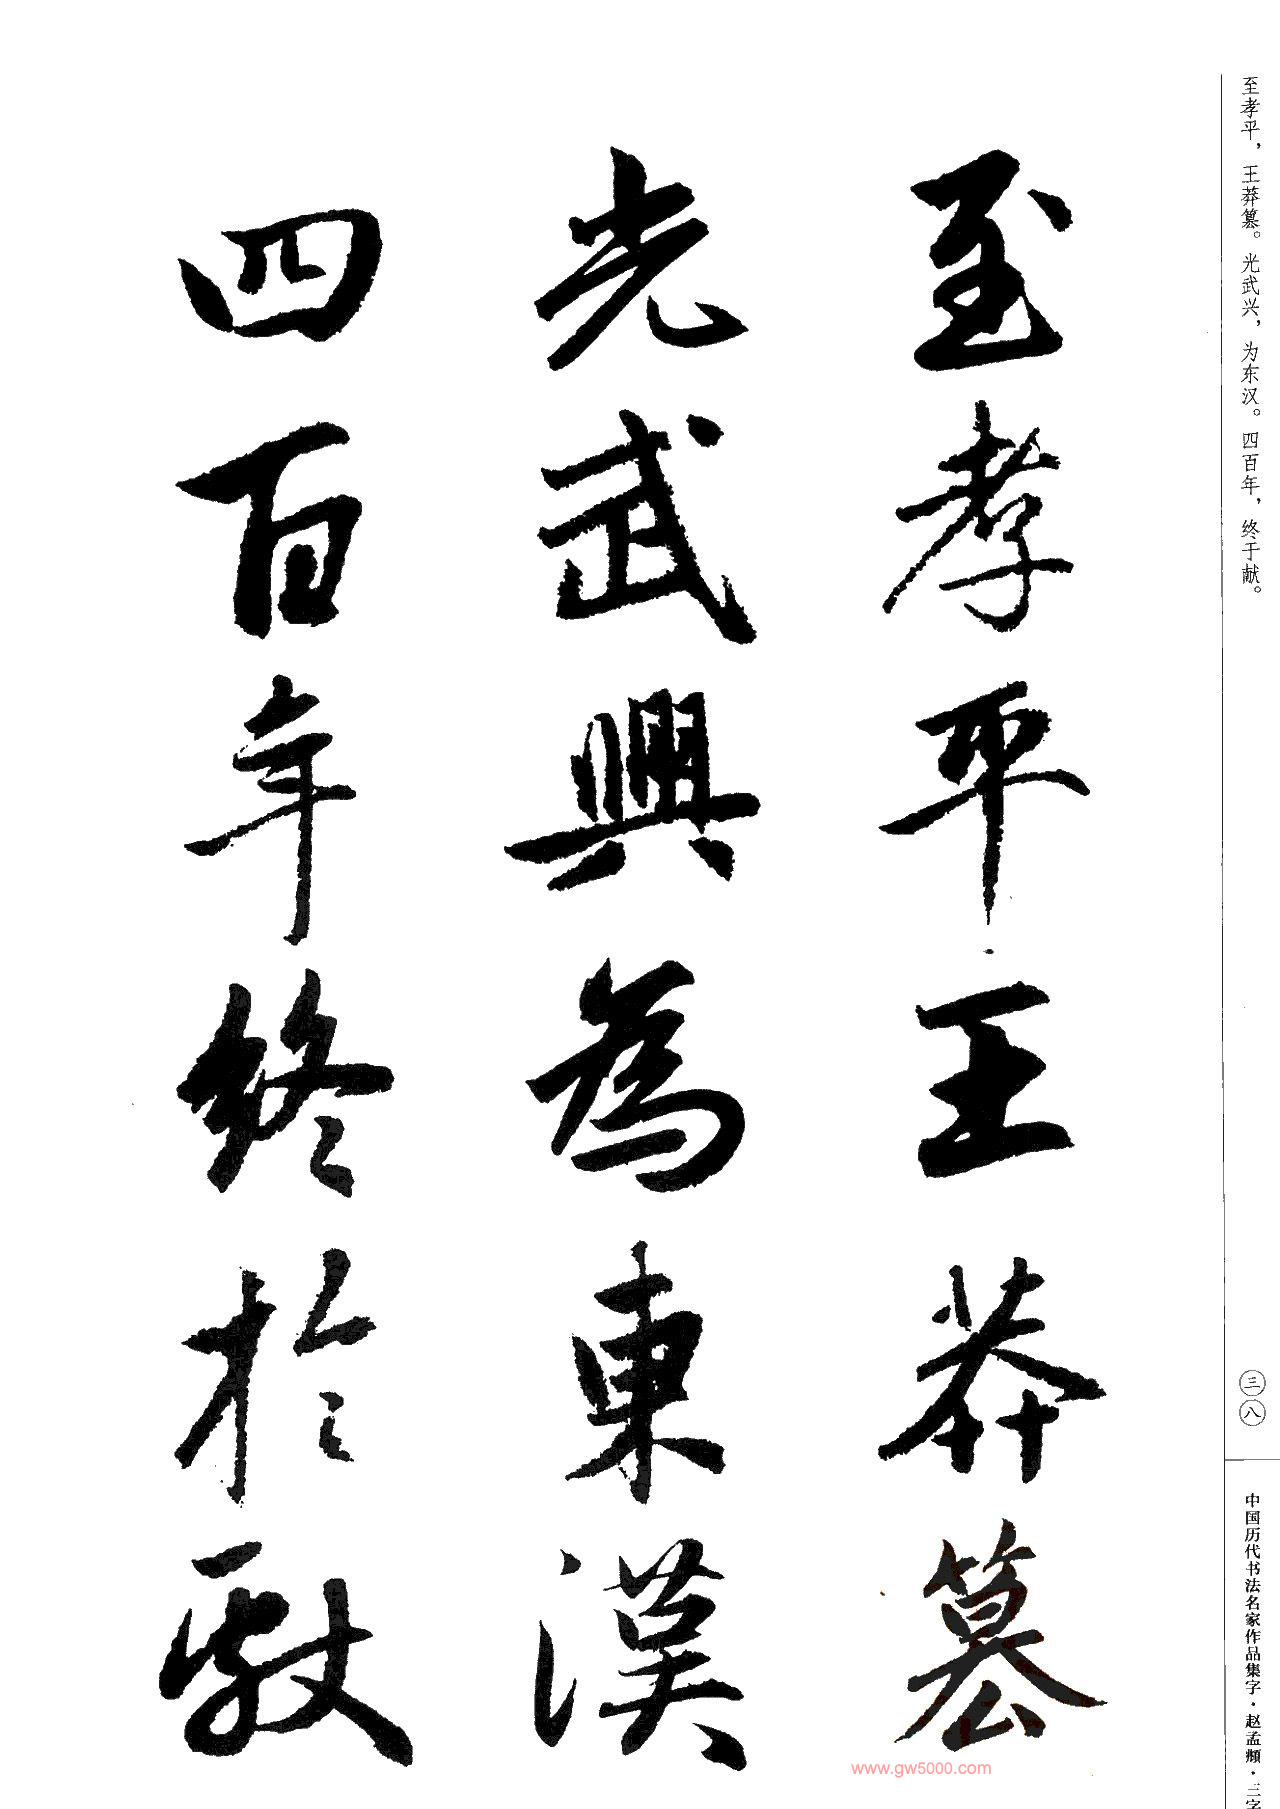 至孝平，王莽篡。光武兴，为东汉。四百年，终于献。
至孝平王莽篡
光武興為東漢
四百年終於獻
三八
中国历代书法名家作品集字·赵孟頫·三字
www.gw5000.com